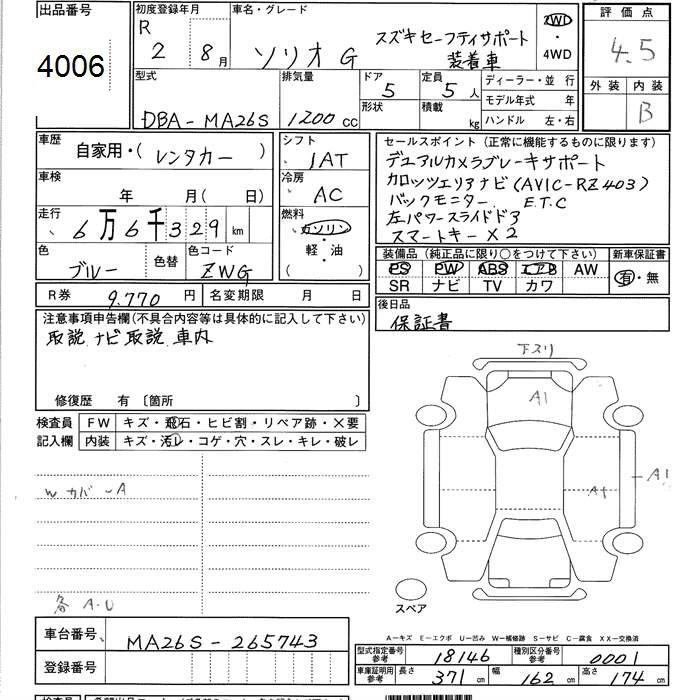 出品番号
4006
初度登録年月
R 2 8月
車名・グレード
ソリオ G スズキセーフティサポート
装着車
2WD
・
4WD
評価点
4.5
外装 内装
B
型式
DBA-MA26S
排気量
1200cc
ドア
5
形状
定員
5人
積載
kg
ディーラー・並行
モデル年式 年
ハンドル 左・右
車歴
自家用・(レンタカー)
車検
年 月( 日)
走行
6万6千329km
色
ブルー
色替
色コード
ZWG
シフト
IAT
冷房
AC
燃料
ガソリン
軽・油
( )
セールスポイント(正常に機能するものに限ります)
デュアルカメラブレーキサポート
カロッツエリアナビ(AVIC-RZ403)
バックモニター. E.T.C
左パワースライドドア
スマートキー×2
装備品(純正品に限り○をつけて下さい)
PS PW ABS エアB AW
SR ナビ TV カワ
新車保証書
有・無
R券 9.770円
名変期限 月 日
後日品
保証書
注意事項申告欄(不具合内容等は具体的に記入して下さい)
取説、ナビ取説 車内
修復歴 有〔箇所 〕
検査員
記入欄
FW キズ・飛石・ヒビ割・リペア跡・×要
内装 キズ・汚レ・コゲ・穴・スレ・キレ・破レ
W カバーA
各 A-U
下スリ
A1
A1
A1
スペア
車台番号
MA26S-265743
登録番号
A-キズ E-エクボ U-凹み W-補修跡 S-サビ C-腐食 XX-交換済
型式指定番号
参考
18146
種別区分番号
参考
0001
車庫証明用
参考
長さ 371cm
幅 162cm
高さ 174cm